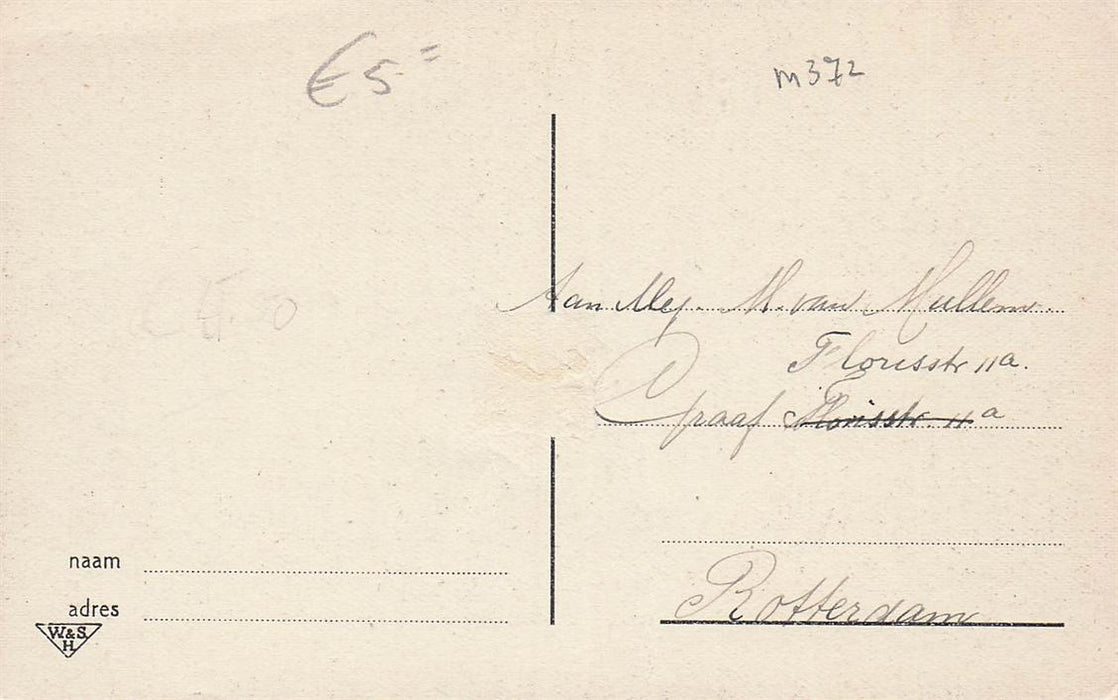 € 5.=
m372
Aan Mej. M. van Mullem.
Florisstr 11a.
Graaf Florisstr. 11a
Rotterdam
naam
adres
W&S
H